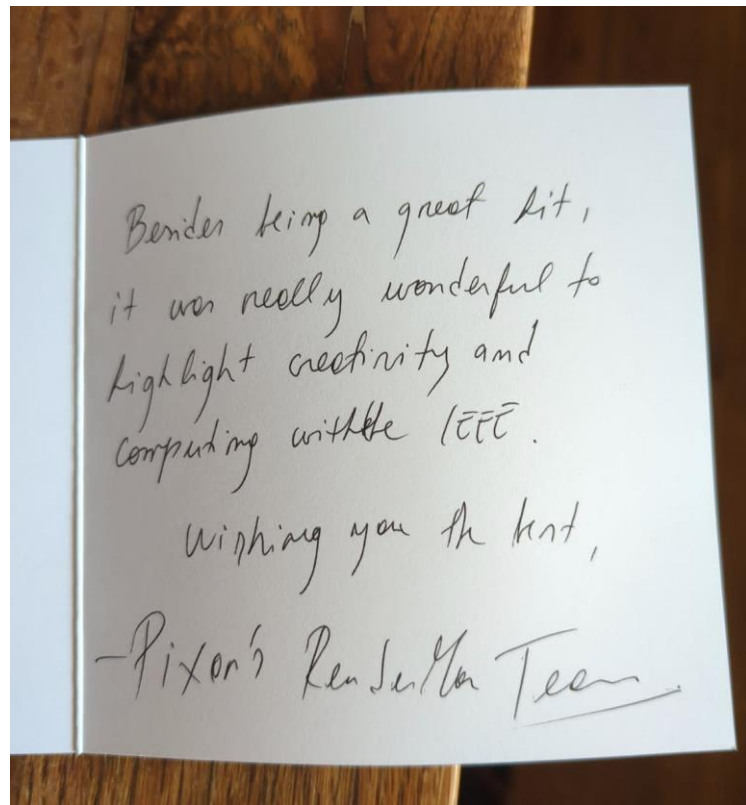 Besides being a great hit,
it was really wonderful to
highlight creativity and
computing with the IEEE.
Wishing you the best,
-Pixar's RenderMan Team